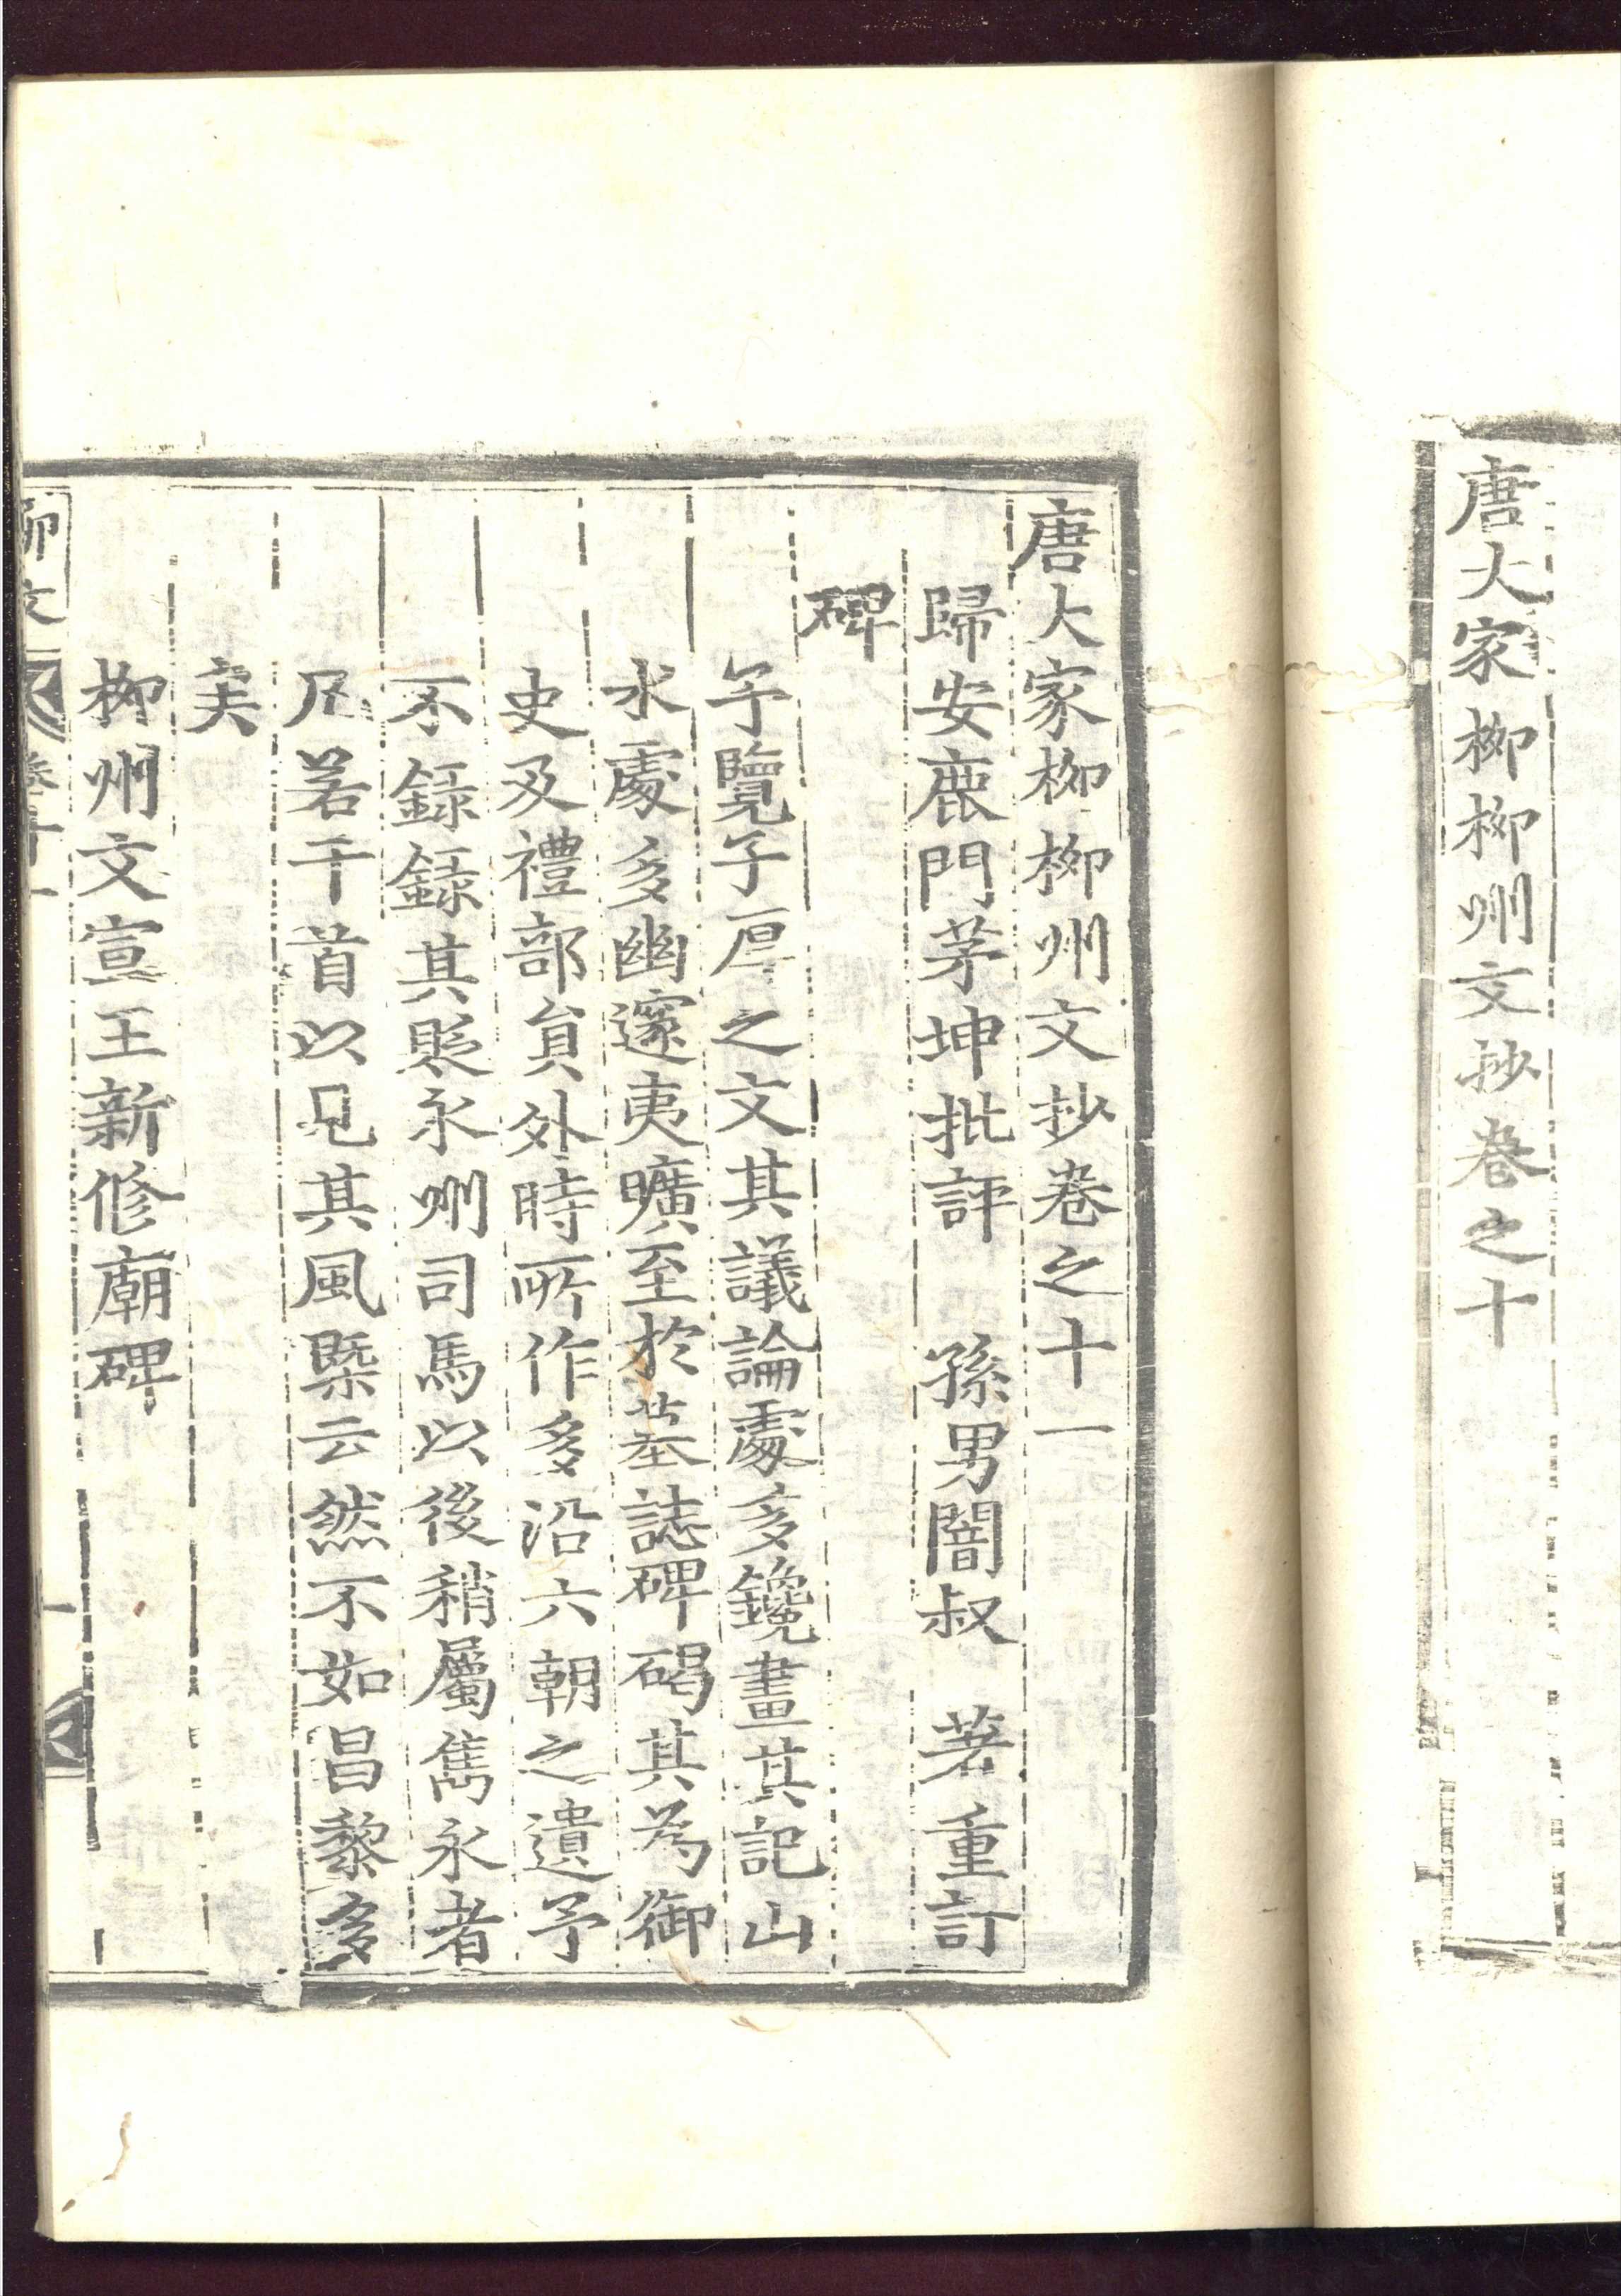 唐大家柳柳州文抄卷之十
唐大家柳柳州文抄卷之十一
歸安鹿門茅坤批評 孫男闇叔 著重訂
碑
予覽子厚之文其議論處多鑱畫其記山
水處多幽邃夷曠至於墓誌碑碣其為御
史及禮部員外時所作多沿六朝之遺予
不錄錄其貶永州司馬以後稍屬雋永者
凡若干首以見其風槩云然不如昌黎多
矣
柳州文宣王新修廟碑
柳文 卷十一 一